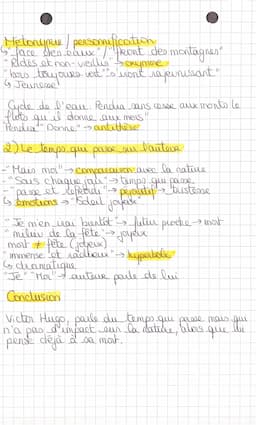 Métonymie / personnification
↳ "face des eaux" / "front des montagnes"
"Ridés et non-vieillis" → oxymore
"bois toujours verts" "s'iront rajeunissant"
↳ Jeunesse
Cycle de l'eau. Prendra sans cesse aux monts le
flots qu'il donne aux mers"
"Prendra" "Donne" → antithèse
2) Le temps qui passe sur l'auteur
- "Mais moi" → comparaison avec la nature
- "Sous chaque jour" → temps qui passe
- "passe et refroidi" → péjoratif → tristesse
↳ émotions → "soleil joyeux"
- "Je m'en irai bientôt" → futur proche → mort
- "milieu de la fête" → joyeux
mort ≠ fête (joyeux)
"immense et radieux" → hyperbole
↳ dramatique
"Je" "Moi" → auteur parle de lui
Conclusion
Victor Hugo, parle du temps qui passe mais qui
n'a pas d'impact sur la nature, alors que lui
pense déjà à sa mort.